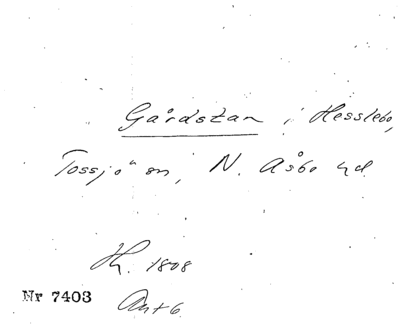 Gårdstan i Hesslebo,
Tossjö sn, N. Åsbo hd.
H. 1808
Nr 7403
Ant 6